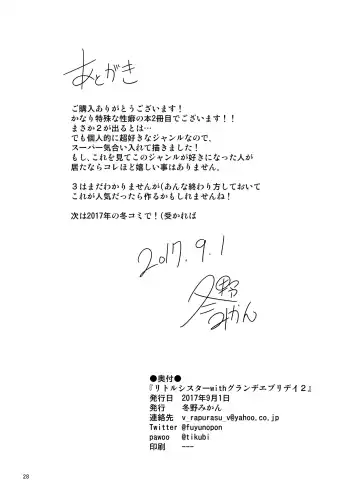 あとがき
ご購入ありがとうございます！
かなり特殊な性癖の本2冊目でございます！！
まさか２が出るとは…
でも個人的に超好きなジャンルなので、
スーパー気合い入れて描きました！
もし、これを見てこのジャンルが好きになった人が
居たならコレほど嬉しい事はありません。
３はまだわかりませんが(あんな終わり方しておいて
これが人気だったら作るかもしれませんね！
次は2017年の冬コミで！(受かれば
2017.9.1
冬野
みかん
●奥付●
『リトルシスターwithグランデエブリデイ２』
発行日　2017年9月1日
発行　冬野みかん
連絡先　v_rapurasu_v@yahoo.co.jp
Twitter @fuyunopon
pawoo　@tikubi
印刷　---
28